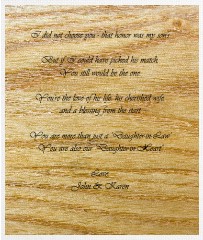 I did not choose you - that honor was my sons
But if I could have picked his match,
You still would be the one
You're the love of his life, his cherished wife,
and a blessing from the start
You are more than just a "Daughter-in-Law"
You are also our "Daughter-in-Heart"
Love
John & Karen